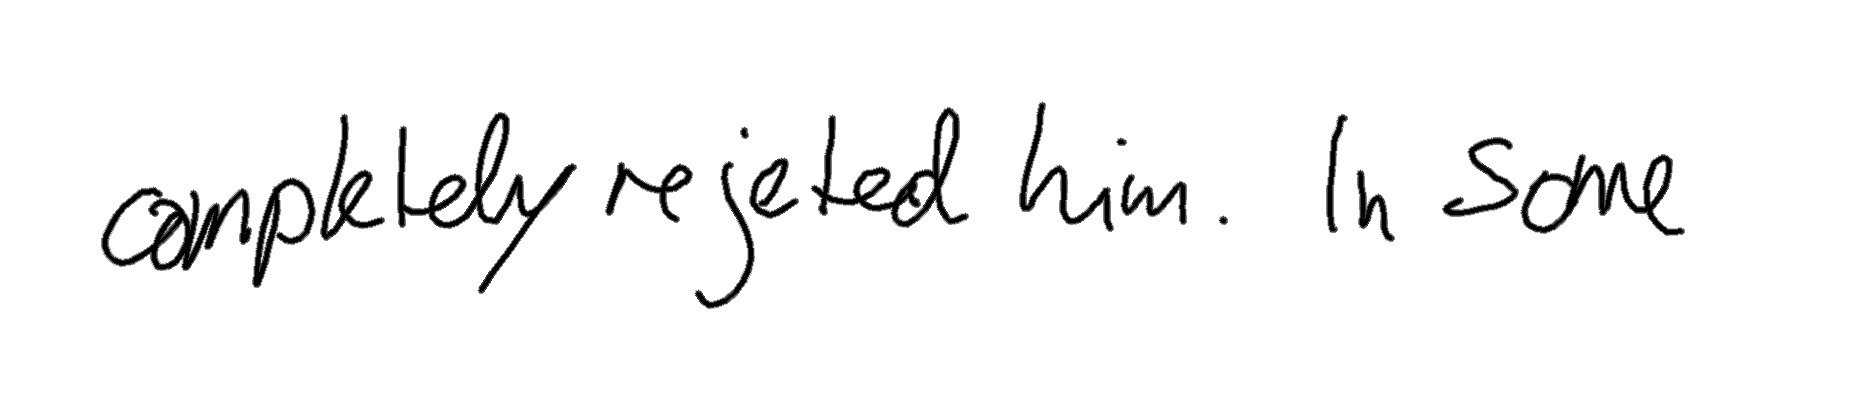 completely rejeted him. In some